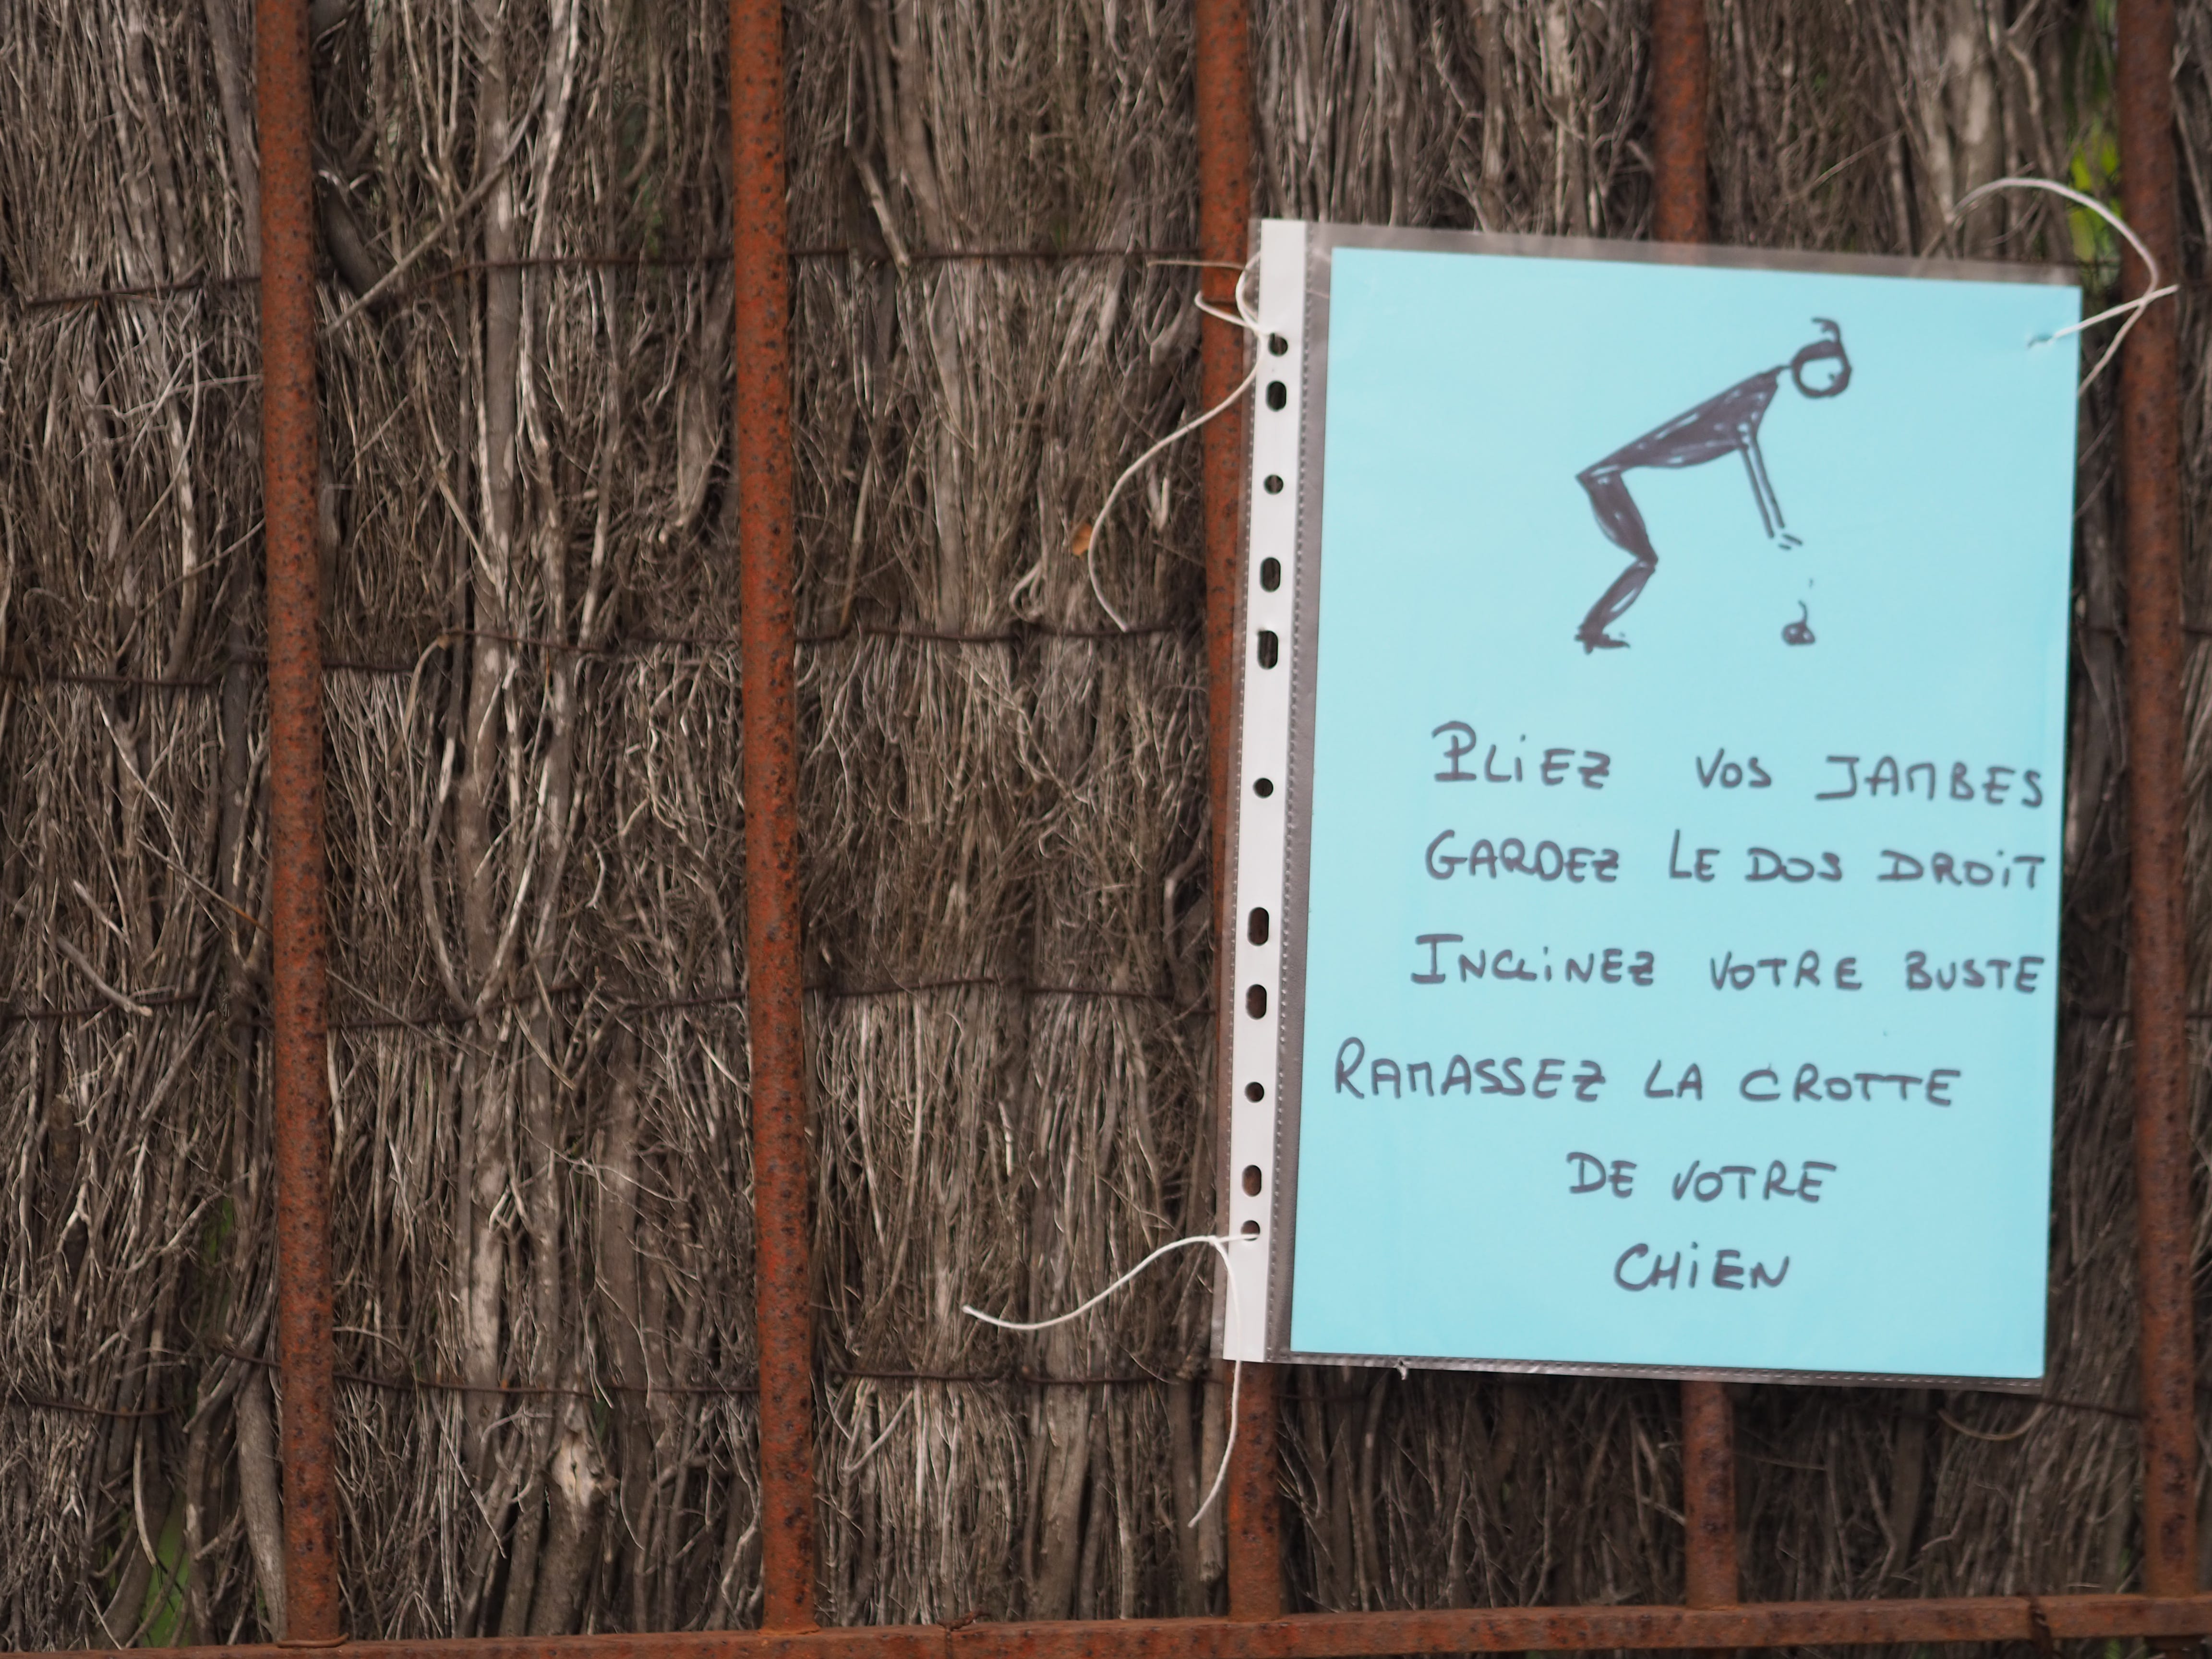 PLiEZ VOS JAMBES
GARDEZ LE DOS DROiT
INCLiNEZ VOTRE BUSTE
RAMASSEZ LA CROTTE
DE VOTRE
CHiEN